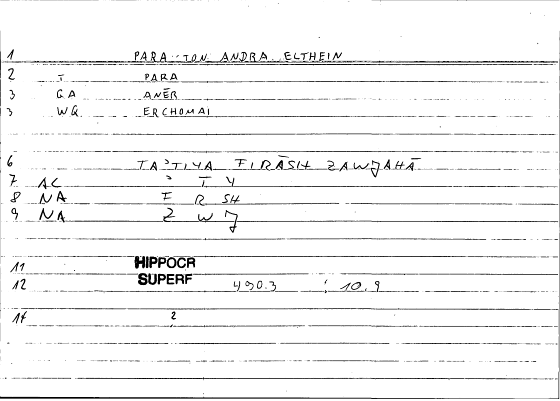 1 PARA TON ANDRA ELTHEIN
2 T PARA
3 GA ANĒR
3 WG ERCHOMAI
6 TA'TIYA FIRĀSH ZAWJAHĀ
7 AC ' T Y
8 NA F R SH
9 NA Z W J
11 HIPPOCR
12 SUPERF 490.3 : 10.9
14 2